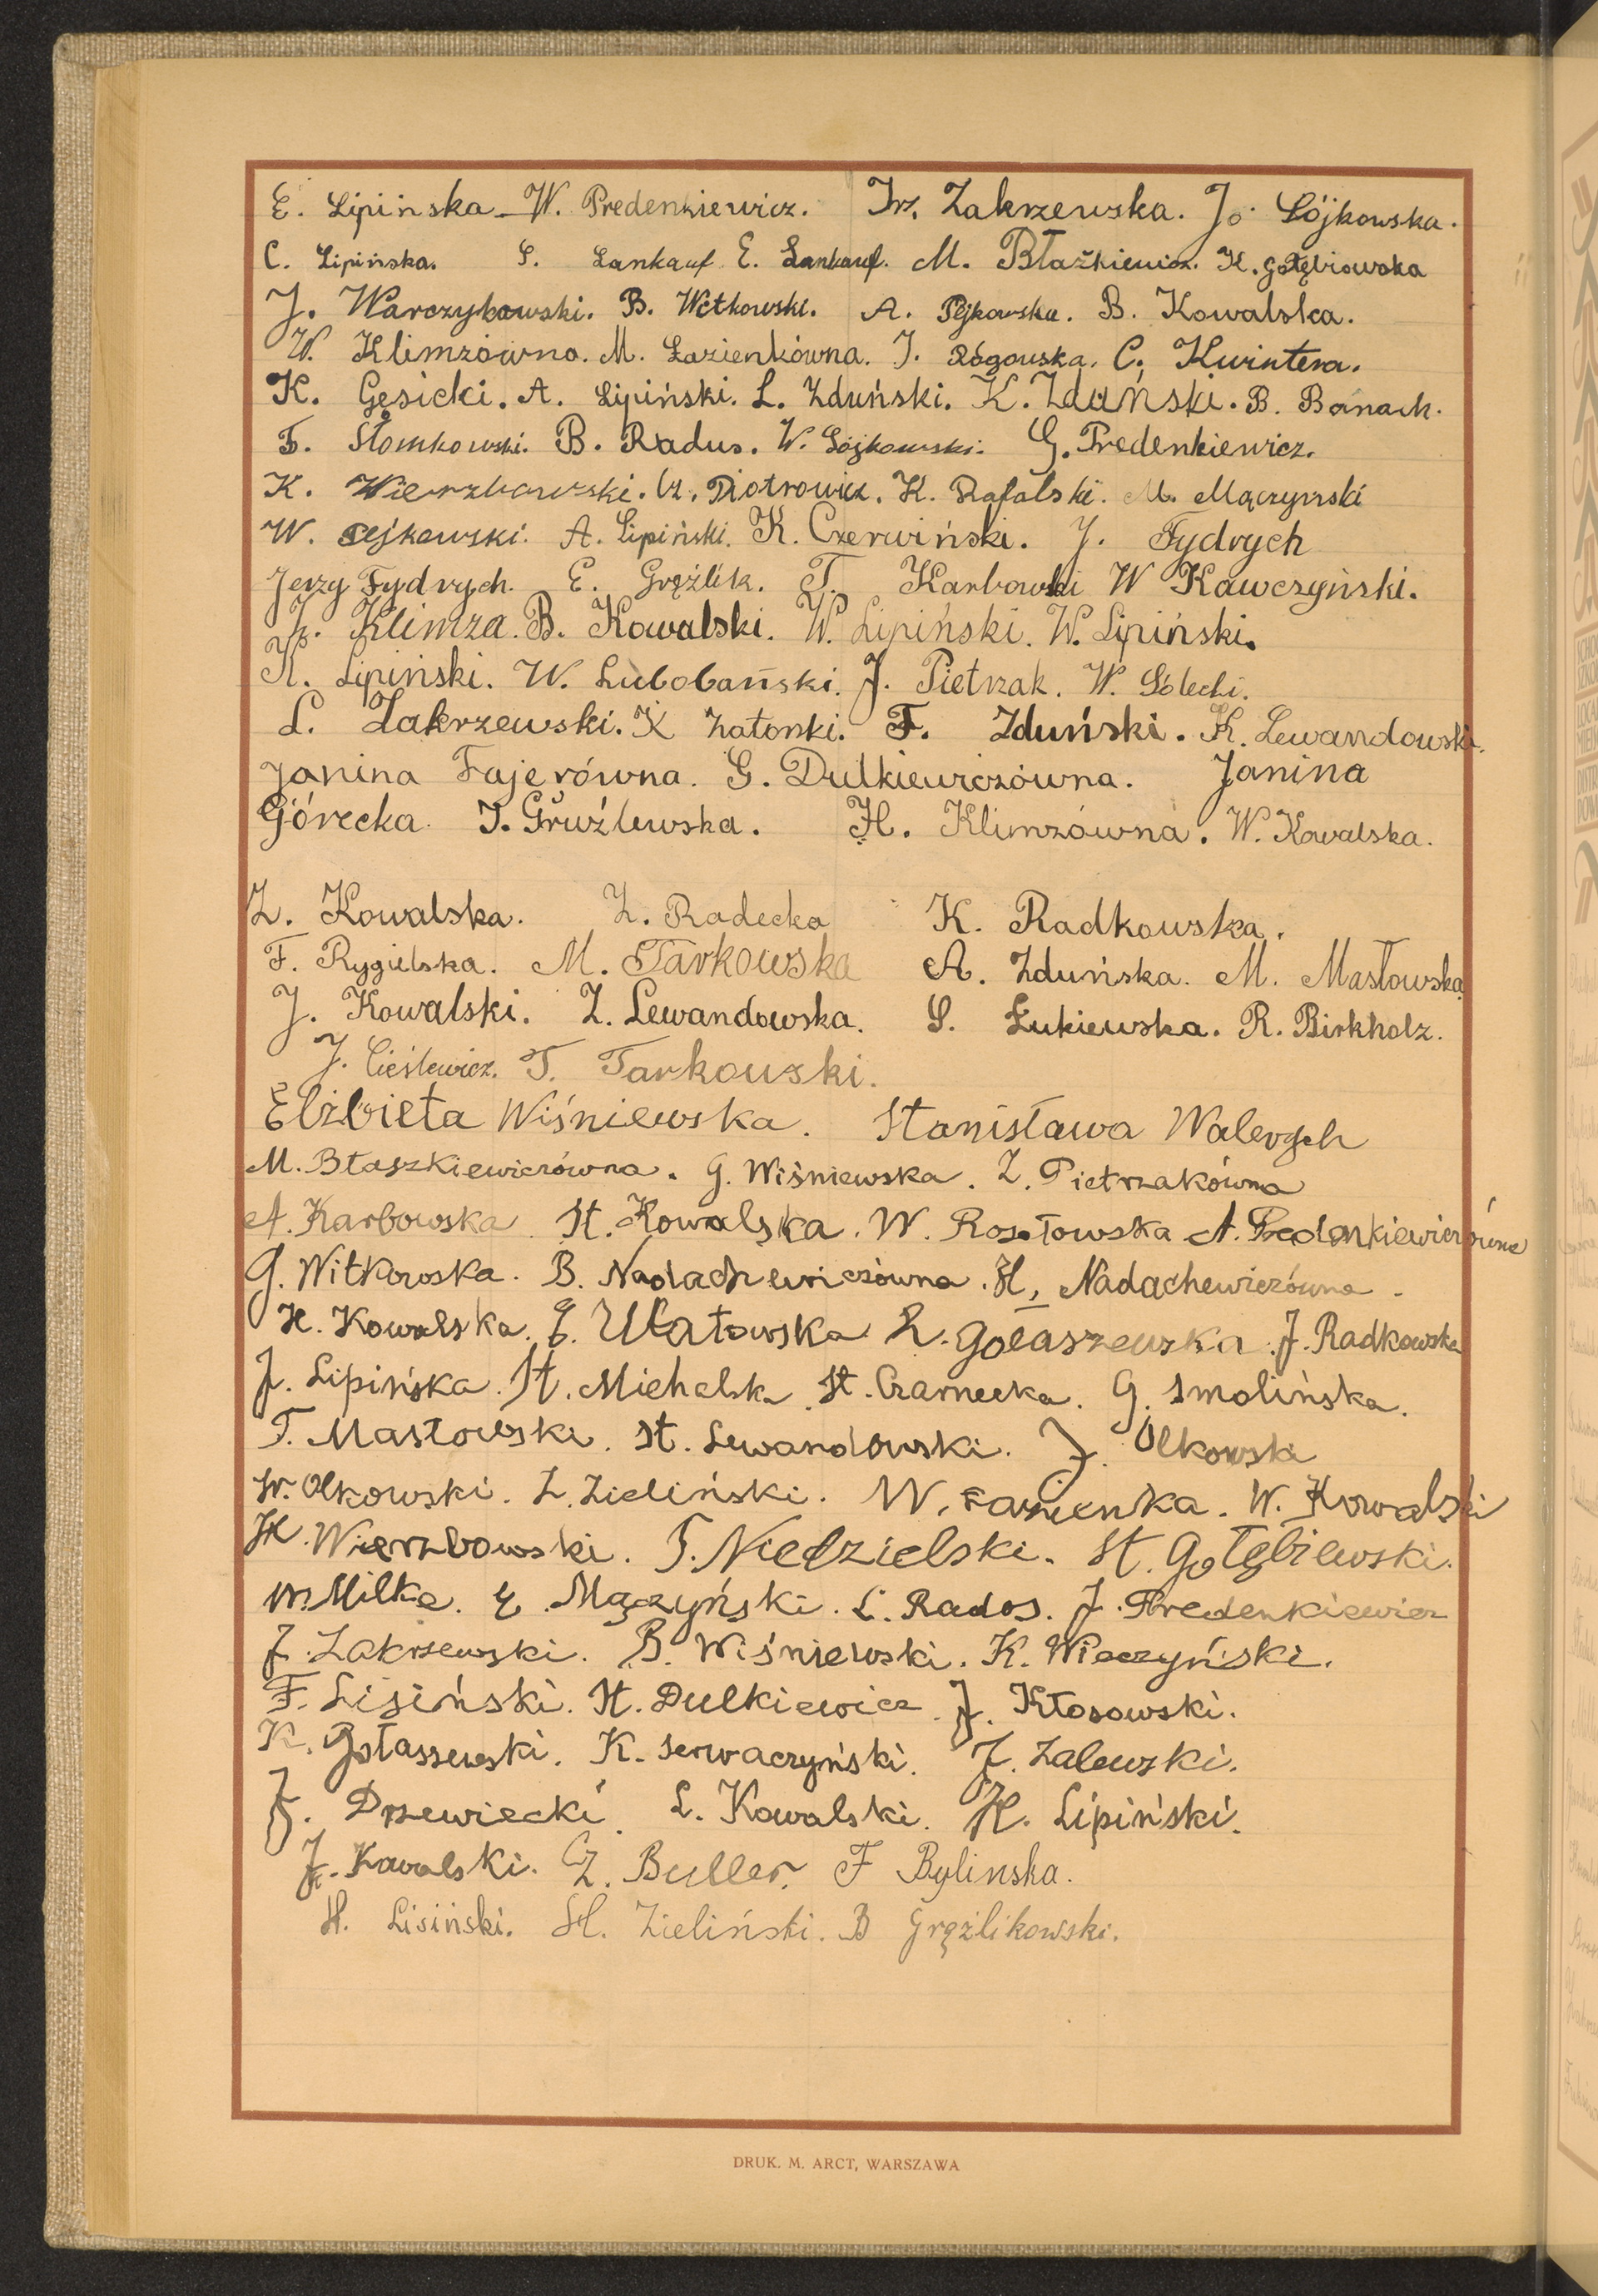 E. Lipińska W. Predenkiewicz. Irz. Zakrzewska. Jo Sójkowska.
C. Lipińska. S. Lankauf E. Lankauf. M. Błażkiewicz. K. Gołębiowska
J. Warczykowski. B. Witkowski. A. Pejkowska. B. Kowalska.
W. Klimzówna. M. Łazienkówna. J. Rógowska. C. Kwintera.
K. Gęsicki. A. Lipiński. L. Zduński. K. Zduński. B. Banach.
F. Słomkowski. B. Radus. W. Sójkowski. G. Predenkiewicz.
K. Wierzbowski. Cz. Piotrowicz. K. Rafalski. M. Mączyński
W. Pejkowski. A. Lipiński. K. Czerwiński. J. Fydrych
Jerzy Fydrych. E. Grężlik. T. Karbowski W Kawczyński.
K. Klimza. B. Kowalski. W. Lipiński. W. Lipiński.
K. Lipiński. W. Lubobański. J. Pietrzak. W. Sólecki.
L. Zakrzewski. K Zatorski. F. Zduński. K. Lewandowski.
Janina Fajerówna. G. Dulkiewiczówna. Janina
Górecka. J. Gruźlewska. H. Klimzówna. W. Kowalska.
Z. Kowalska. Z. Radecka K. Radkowska.
F. Rygielska. M. Tarkowska A. Zduńska. M. Masłowska
J. Kowalski. Z. Lewandowska. S. Łukiewska. R. Birkholz.
J. Cieślewicz. T. Tarkowski.
Elżbieta Wiśniewska. Stanisława Walerych
M. Błaszkiewiczówna. G. Wiśniewska. Z. Pietrzakówna
A. Karbowska St. Kowalska. W. Rosołowska A. Predenkiewiczówna
G. Witkowska. B. Nadachewiczówna. H. Nadachewiczówna.
H. Kowalska. E. Ułatowska R. Gołaszewska. J. Radkowska
J. Lipińska. St. Michalska St. Czarnecka. G. Smolińska.
T. Masłowski. St. Lewandowski. J. Olkowski
W. Olkowski. Z. Zieliński. W. Łazienka. W. Kowalski
H. Wierzbowski. T. Niedzielski. St. Gołębiewski.
M. Milke. E. Mączyński. L. Rados. J. Predenkiewicz
J. Zakrzewski. B. Wiśniewski. K. Wieczyński.
F. Lisiński. St. Dulkiewicz J. Kłosowski.
K. Gołaszewski. K. Serwaczyński. J. Zalewski.
J. Drzewiecki. L. Kowalski. H. Lipiński.
J. Kowalski. Cz. Buller. F Bylinska.
H. Lisiński. H. Zieliński. B Grężlikowski.
DRUK. M. ARCT, WARSZAWA